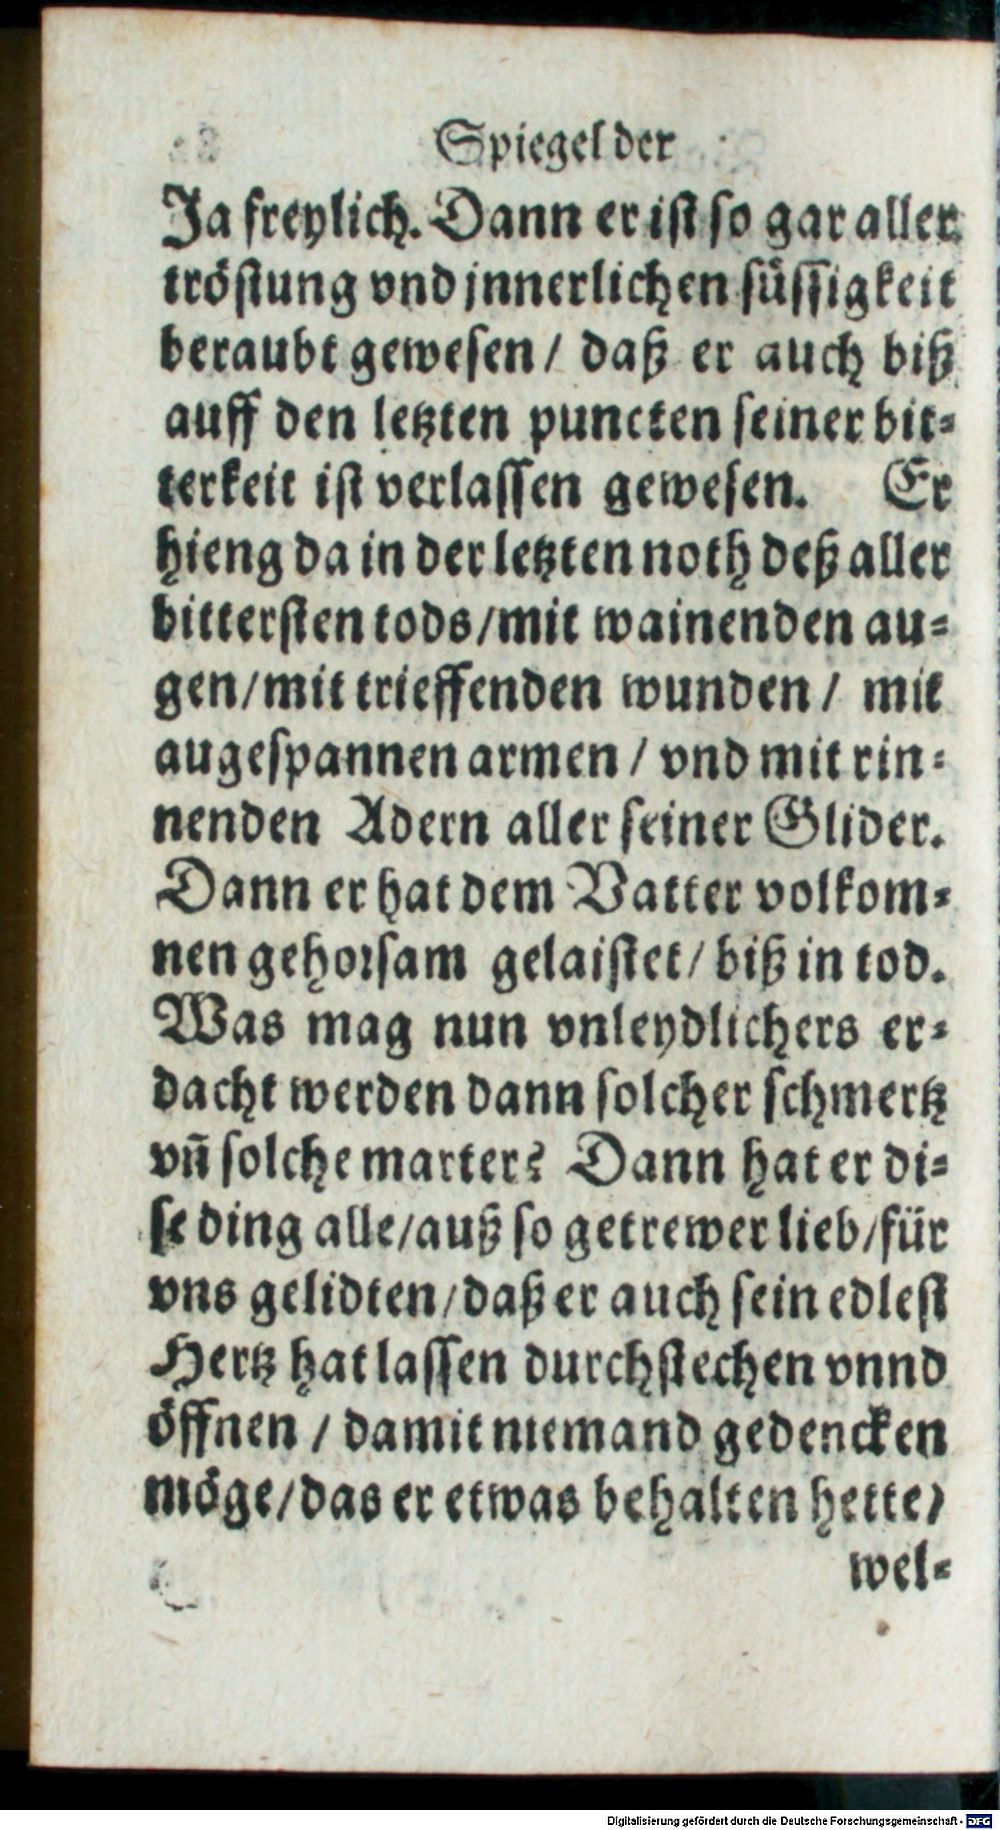 Spiegel der
Ja freylich. Dann er ist so gar aller
tröstung vnd jnnerlichen süssigkeit
beraubt gewesen / daß er auch biß
auff den letzten puncten seiner bit-
terkeit ist verlassen gewesen. Er
hieng da in der letzten noth deß aller
bittersten tods / mit wainenden au-
gen / mit trieffenden wunden / mit
augespannen armen / vnd mit rin-
nenden Adern aller seiner Glider.
Dann er hat dem Vatter volkom-
nen gehorsam gelaistet / biß in tod.
Was mag nun vnleydlichers er-
dacht werden dann solcher schmertz
vñ solche marter? Dann hat er di-
se ding alle / auß so getrewer lieb / für
vns gelidten / daß er auch sein edlest
Hertz hat lassen durchstechen vnnd
öffnen / damit niemand gedencken
möge / das er etwas behalten hette /
wel-
Digitalisierung gefördert durch die Deutsche Forschungsgemeinschaft - DFG